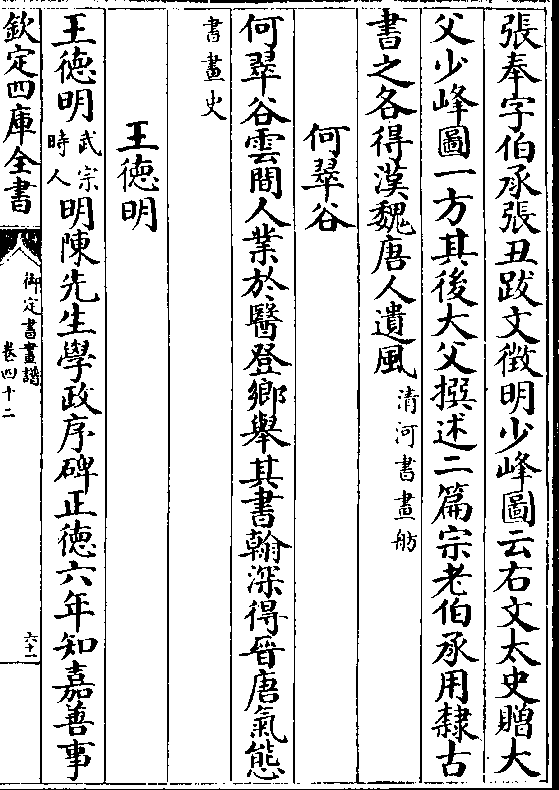 張奉字伯承張丑跋文徴明少峰圖云右文太史贈大
父少峰圖一方其後大父撰述二篇宗老伯承用隸古
書之各得漢魏唐人遺風清河書畫舫
何翠谷
何翠谷雲間人業於醫登鄉舉其書翰深得晉唐氣態
書畫史
王徳明
王徳明武宗時人明陳先生學政序碑正徳六年知嘉善事
欽定四庫全書
御定書畫譜
卷四十二
六十一